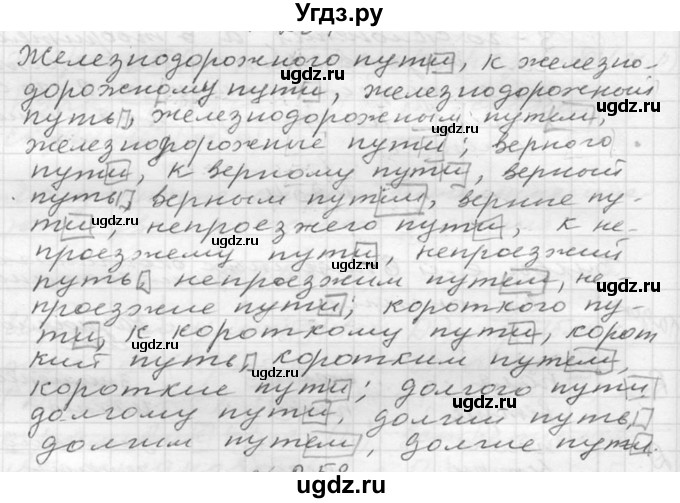 Угдз.ру
Железнодорожного пути, к железно-
дорожному пути, железнодорожный
путь, железнодорожным путем,
железнодорожные пути; верного
пути, к верному пути, верный
путь, верным путем, верные пу-
ти, непроезжего пути, к не-
проезжему пути, непроезжий
путь, непроезжим путем, не-
проезжие пути; короткого пу-
ти, к короткому пути, корот
кий путь, коротким путем,
короткие пути; долгого пути
долгому пути, долгий путь,
долгим путем, долгие пути.
угдз.ру
угдз.ру
угдз.ру
угдз.ру
угдз.ру
угдз.ру
угдз.ру
угдз.ру
угдз.ру
угдз.ру
угдз.ру